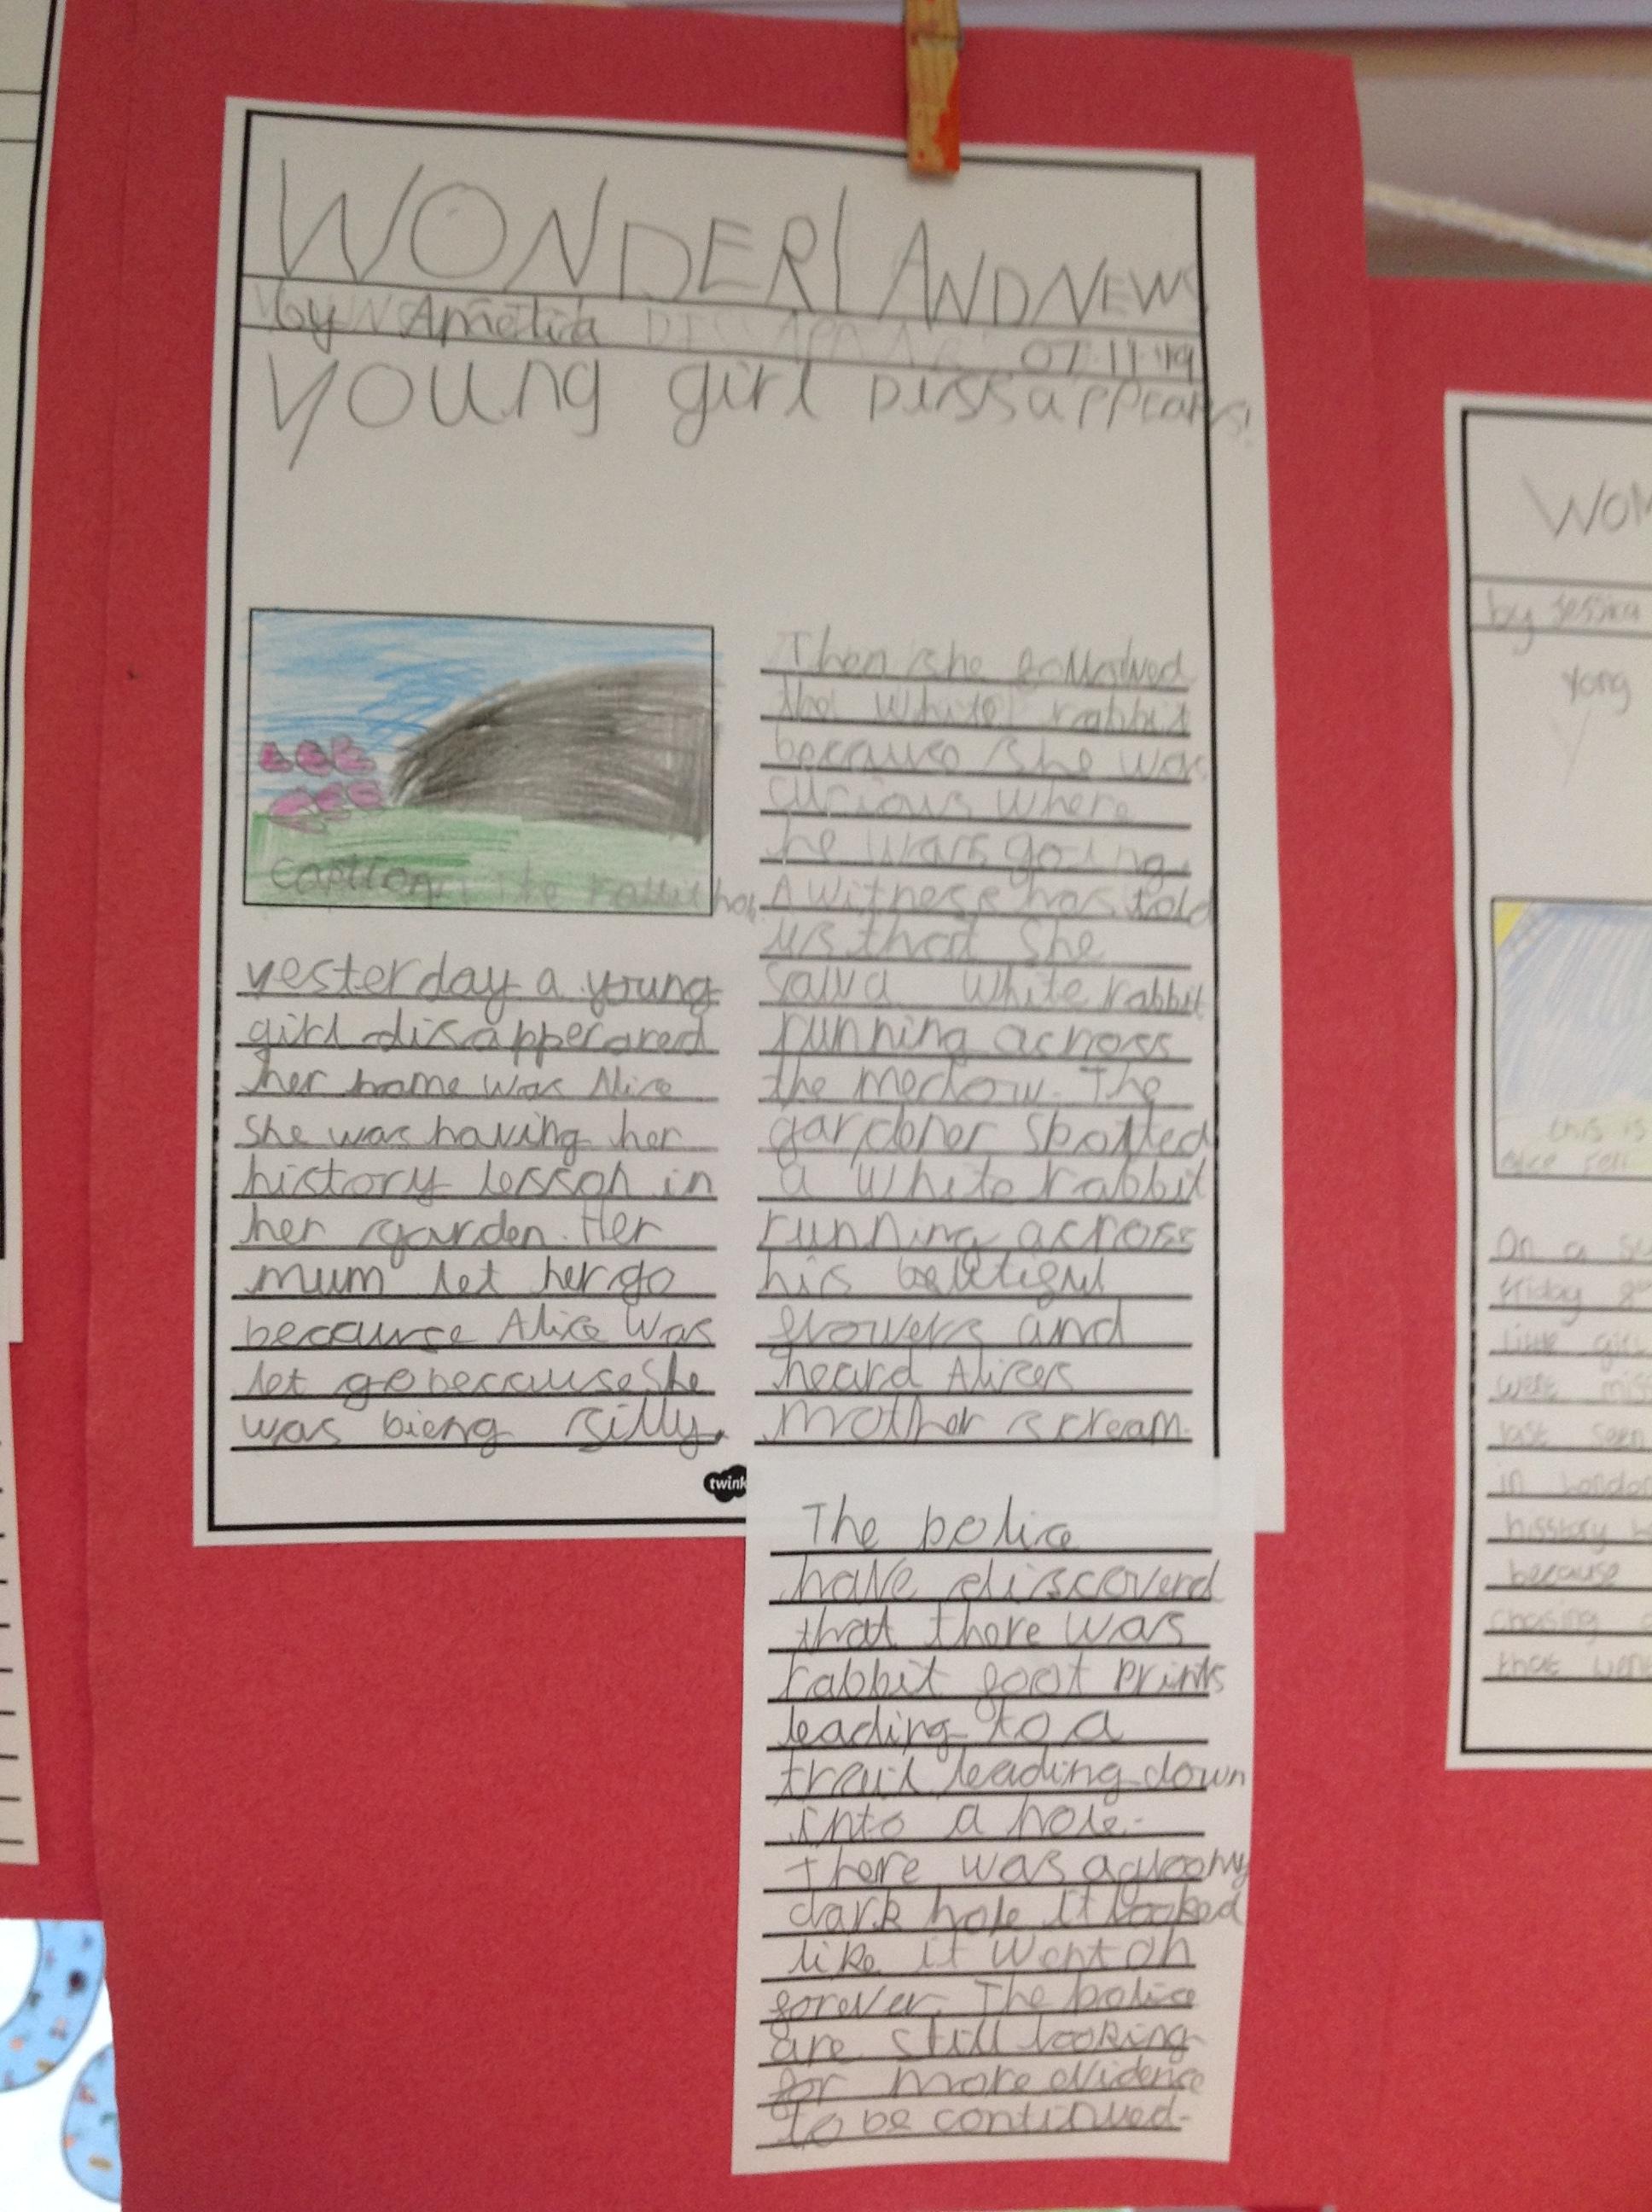 WONDERLAND NEWS
by Amelia
07.11.19
Young girl Dissappears!
Caption: the rabbit hole
yesterday a young
girl disapperared
her name was Alice
She was having her
history lesson in
her garden. Her
mum let her go
because Alice was
let go because she
was bieng silly.
Then she followed
the white rabbit
because she was
curious where
he was going.
A witness has told
us that she
saw a white rabbit
running across
the medow. The
gardener spotted
a white rabbit
running across
his beutiful
flowers and
heard Alices
mother scream.
twink
The police
have discoverd
that there was
rabbit foot prints
leading to a
trail leading down
into a hole.
There was a gloomy
dark hole it looked
like it went on
forever. The police
are still looking
for more evidence
to be continued.
WON
by Jessica
Yong
this is
alice fell
On a su
friday 8
little girl
went miss
last seen
in London
hisstory
because
chasing
that went